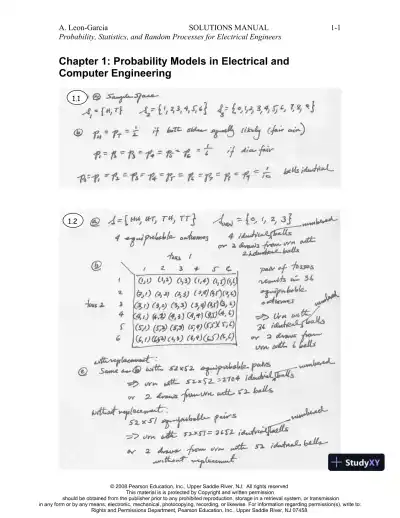 A. Leon-Garcia SOLUTIONS MANUAL 1-1
Probability, Statistics, and Random Processes for Electrical Engineers
Chapter 1: Probability Models in Electrical and
Computer Engineering
1.1 ⓐ Sample Space
S₁ = {H, T} S₂ = {1,2,3,4,5,6} S₃ = {0,1,2,3,4,5,6,7,8,9}
ⓑ p_H = p_T = 1/2 if both sides equally likely (fair coin)
p₁ = p₂ = p₃ = p₄ = p₅ = p₆ = 1/6 if die fair
p₀ = p₁ = p₂ = p₃ = p₄ = p₅ = p₆ = p₇ = p₈ = p₉ = 1/10 balls identical
1.2 ⓐ S = {HH, HT, TH, TT} S_urn = {0, 1, 2, 3}
4 equiprobable outcomes 4 identical numbered balls
or 2 draws from urn with
2 identical balls
ⓑ toss 1
1 2 3 4 5 6
toss 2
1 (1,1) (1,2) (1,3) (1,4) (1,5) (1,6)
2 (2,1) (2,2) (2,3) (2,4) (2,5) (2,6)
3 (3,1) (3,2) (3,3) (3,4) (3,5) (3,6)
4 (4,1) (4,2) (4,3) (4,4) (4,5) (4,6)
5 (5,1) (5,2) (5,3) (5,4) (5,5) (5,6)
6 (6,1) (6,2) (6,3) (6,4) (6,5) (6,6)
pair of tosses
results in 36
equiprobable
outcomes
⇒ Urn with
36 identical numbered balls
or 2 draws from
urn with 6 balls
with replacement:
ⓒ Same as ⓑ with 52×52 equiprobable pairs
⇒ urn with 52×52 = 2704 identical numbered balls
or 2 draws from urn with 52 balls
Without replacement:
52×51 equiprobable pairs
⇒ urn with 52×51 = 2652 identical numbered balls
or 2 draws from urn with 52 identical balls
without replacement
StudyXY
© 2008 Pearson Education, Inc., Upper Saddle River, NJ. All rights reserved
This material is is protected by Copyright and written permission
should be obtained from the publisher prior to any prohibited reproduction, storage in a retrieval system, or transmission
in any form or by any means, electronic, mechanical, photocopying, recording, or likewise. For information regarding permission(s), write to:
Rights and Permissions Department, Pearson Education, Inc., Upper Saddle River, NJ 07458.